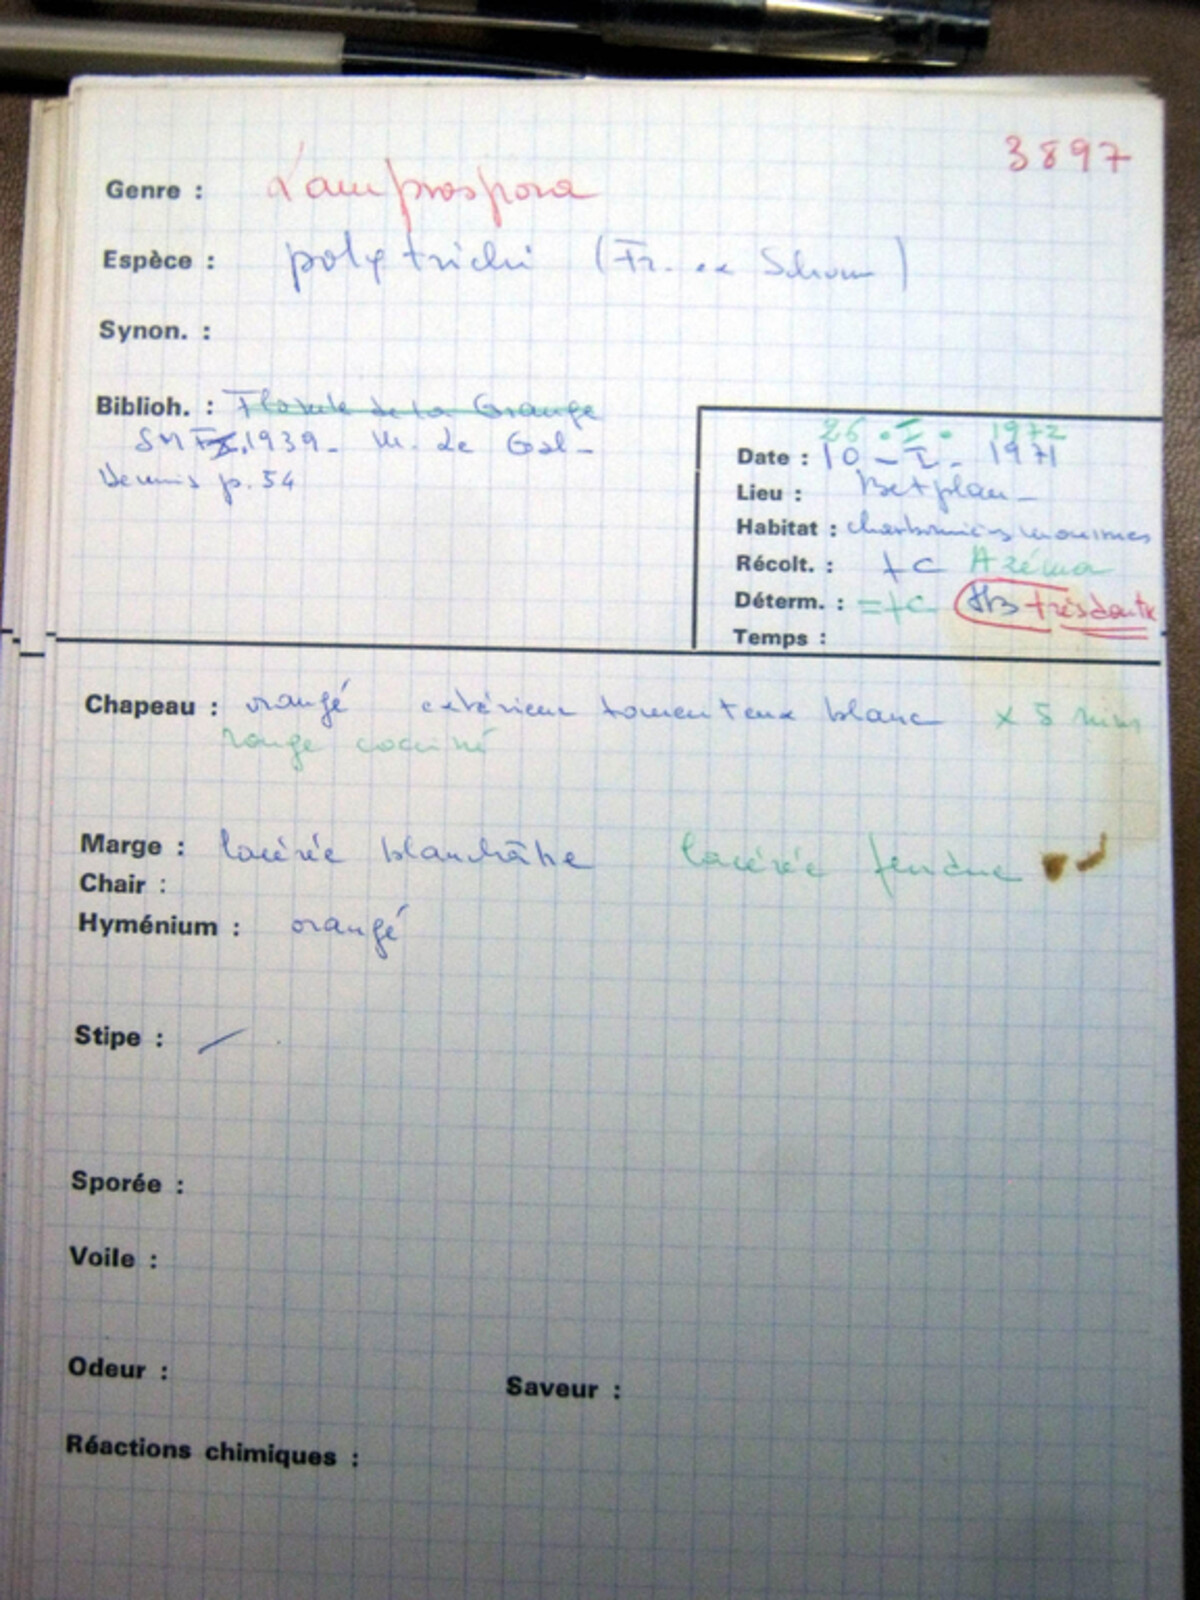 3897
Genre : Lamprospora
Espèce : polytrichi (Fr. ex Schum)
Synon. :
Biblioh. : Florule de la Grange
SMF 1939 - M. Le Gal -
Dennis p. 54
26 . I . 1972
Date : 10 - I - 1971
Lieu : Betplan -
Habitat : mousses
Récolt. : +C Azéma
Déterm. : =+C très
Temps :
Chapeau : orangé extérieur tomenteux blanc x 5 mm
rouge cocciné
Marge : lacérée blanchâtre lacérée fendue
Chair :
Hyménium : orangé
Stipe : /
Sporée :
Voile :
Odeur : Saveur :
Réactions chimiques :